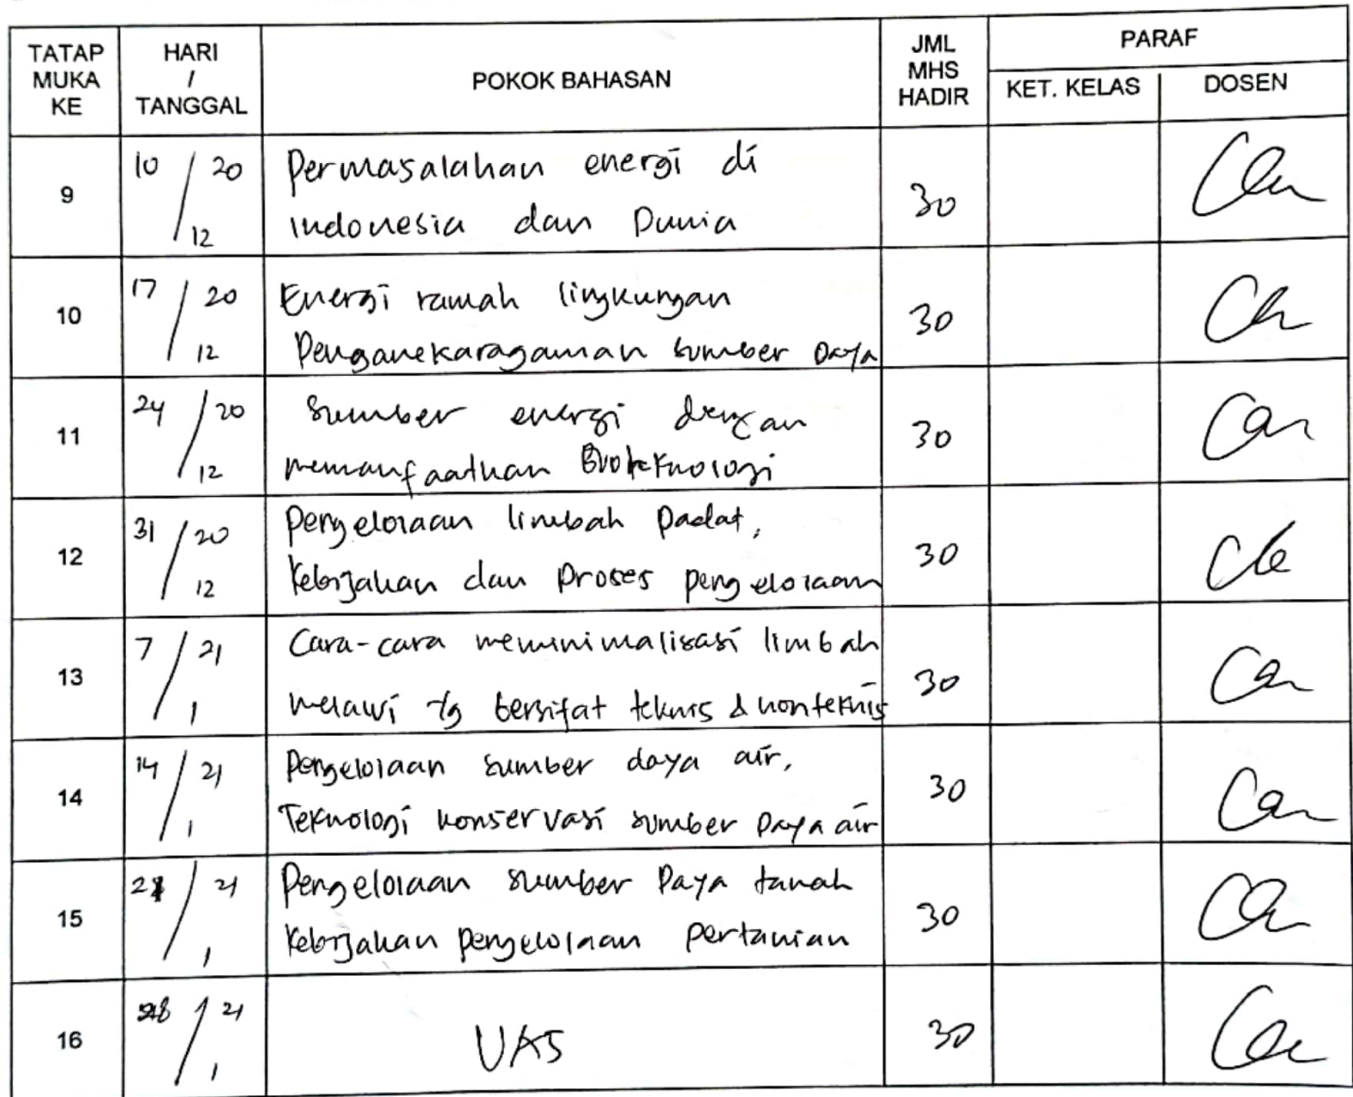 TATAP MUKA KE
HARI / TANGGAL
POKOK BAHASAN
JML MHS HADIR
PARAF
KET. KELAS
DOSEN
9
10 / 20
12
Permasalahan energi di
indonesia dan Dunia
30
10
17 / 20
12
Energi ramah lingkungan
Penganekaragaman sumber Daya
30
11
24 / 20
12
Sumber energi dengan
memanfaatkan Bioteknologi
30
12
31 / 20
12
Pengelolaan limbah Padat,
Kebijakan dan Proses pengelolaan
30
13
7 / 21
1
Cara-cara meminimalisasi limbah
melalui yg bersifat teknis & nonteknis
30
14
14 / 21
1
Pengelolaan sumber daya air,
Teknologi konservasi sumber Daya air
30
15
21 / 21
1
Pengelolaan sumber Daya tanah
Kebijakan pengelolaan pertanian
30
16
28 / 21
1
UAS
30